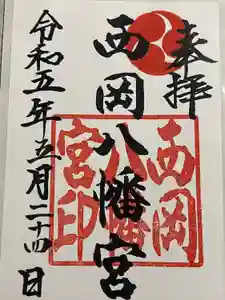 奉拝
西岡八幡宮
西岡
八幡
宮印
令和五年五月二十四日